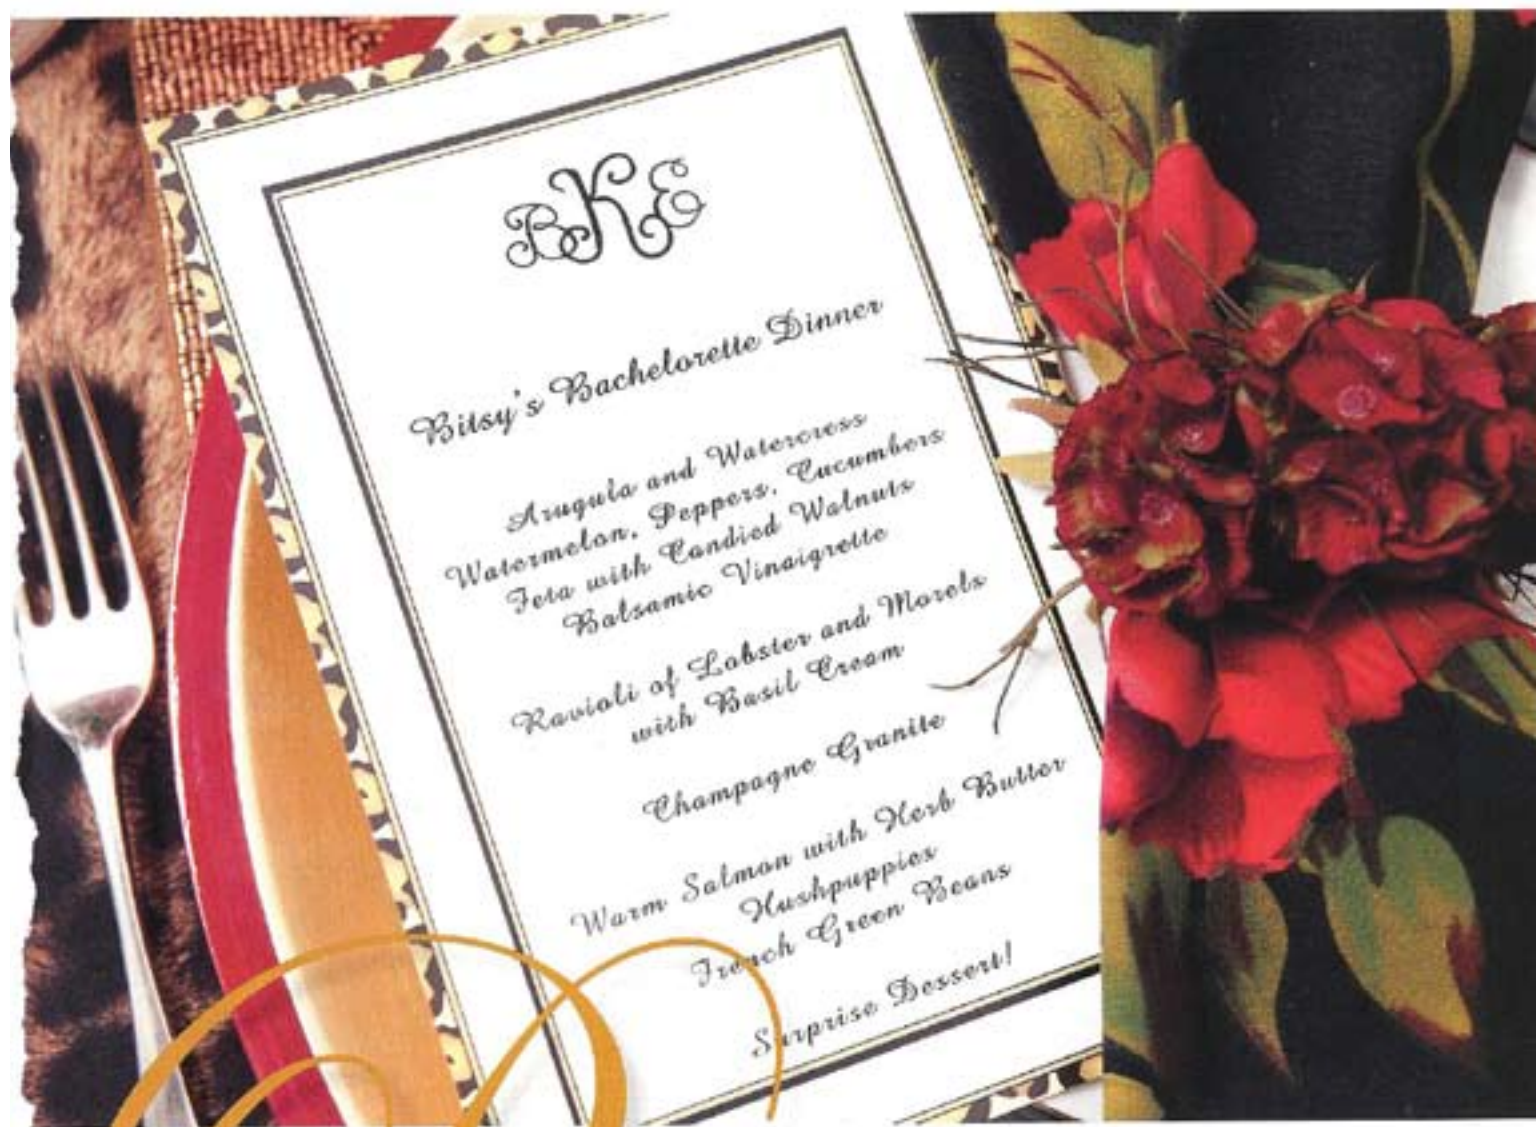 BKE
Bitsy's Bachelorette Dinner
Arugula and Watercress
Watermelon, Peppers, Cucumbers
Feta with Candied Walnuts
Balsamic Vinaigrette
Ravioli of Lobster and Morels
with Basil Cream
Champagne Granite
Warm Salmon with Herb Butter
Hushpuppies
French Green Beans
Surprise Dessert!